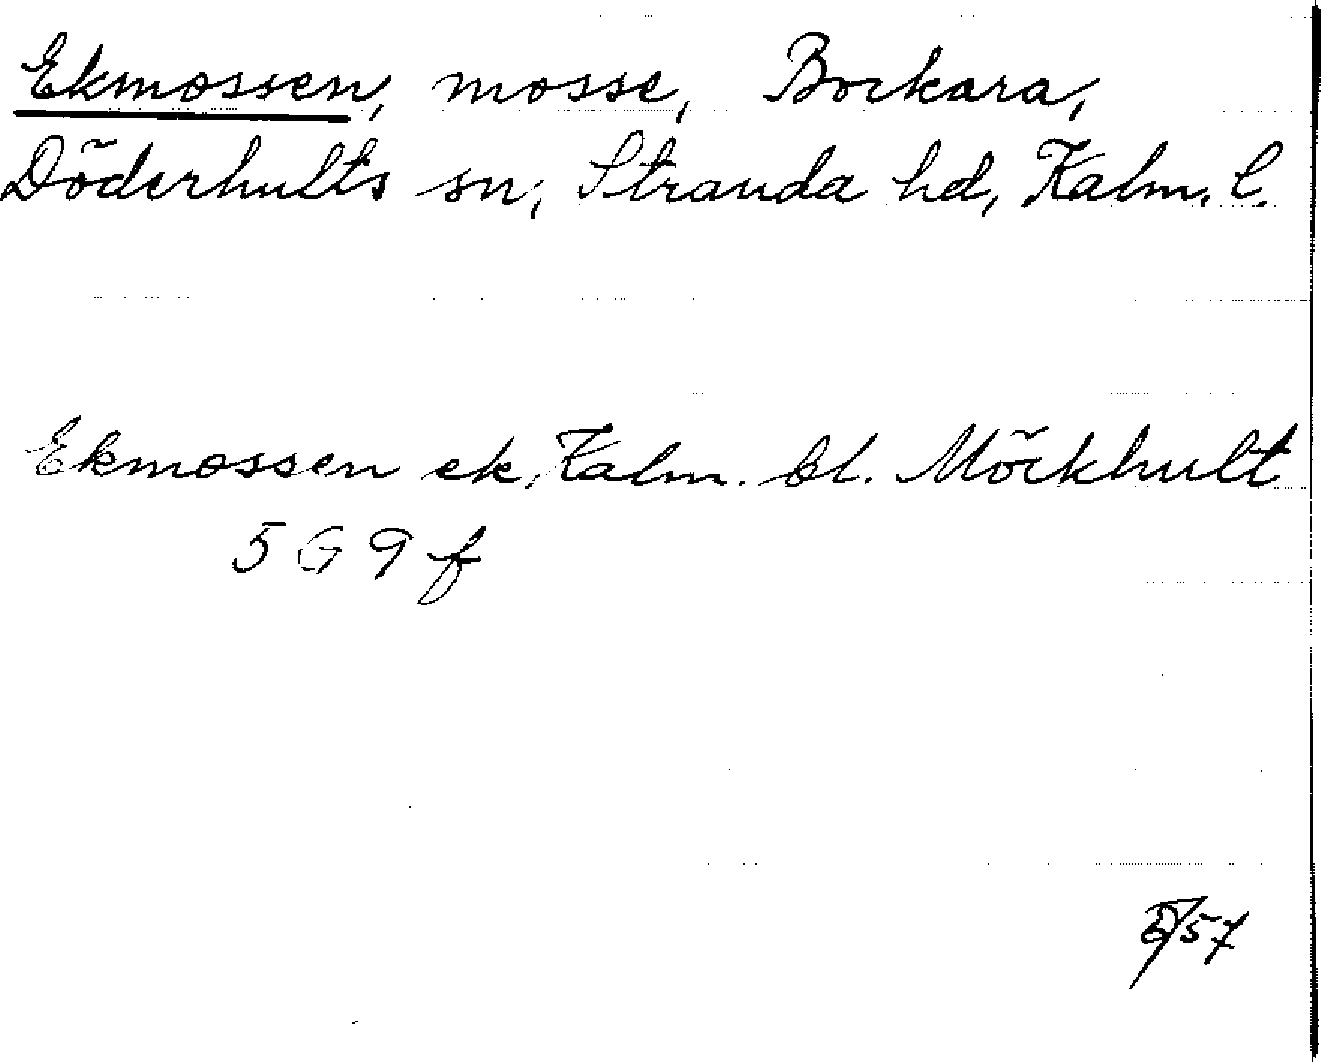 Ekmossen, mosse, Bockara,
Döderhults sn, Stranda hd, Kalm. l.
Ekmossen ek, Kalm. bl. Möckhult
5 G 9 f
/57